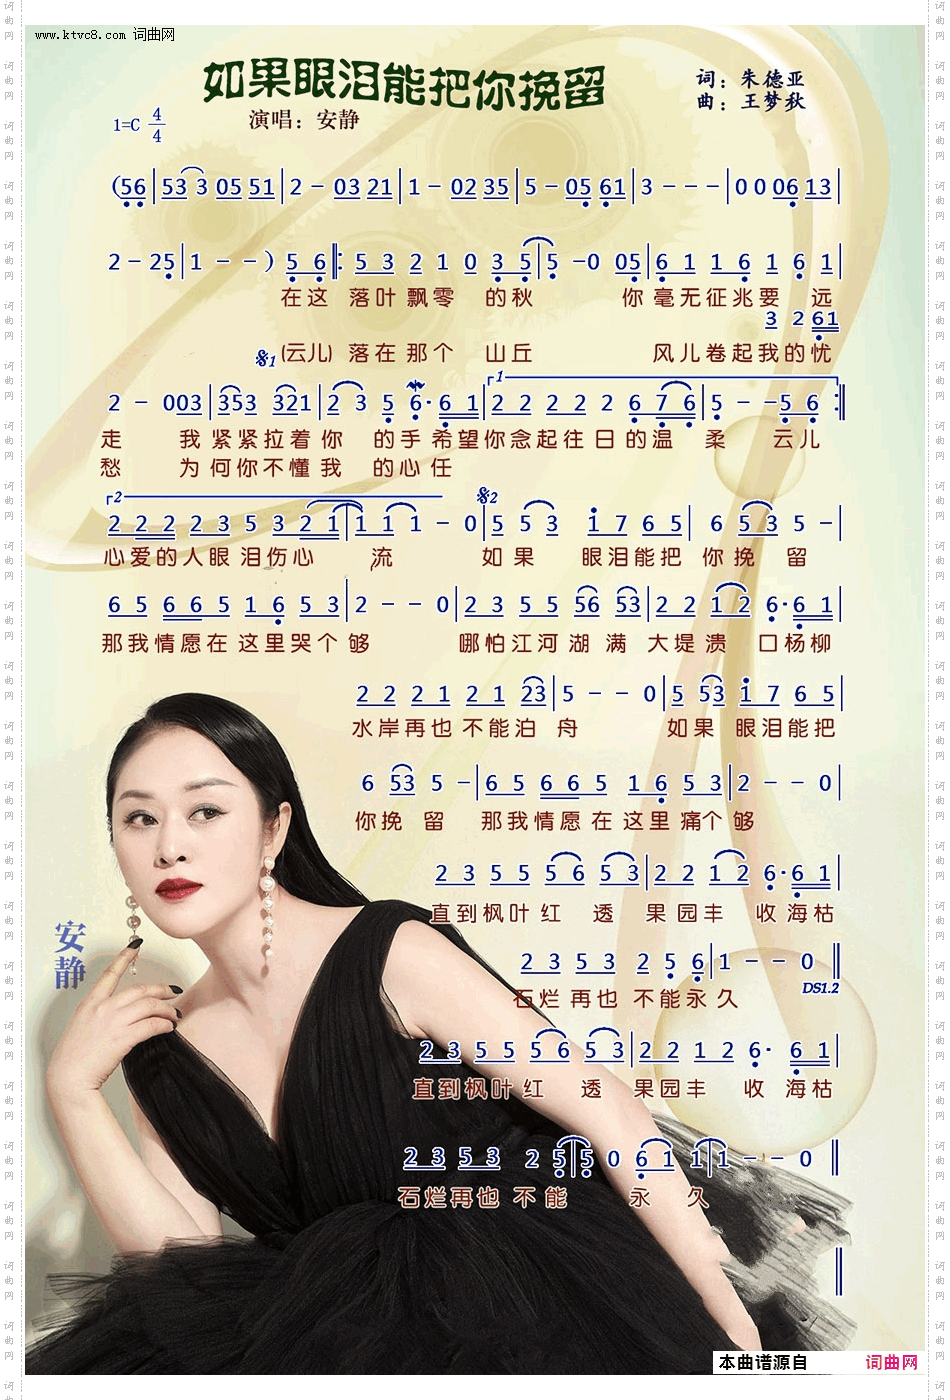 www.ktvc8.com 词曲网
如果眼泪能把你挽留
词：朱德亚
曲：王梦秋
1=C 4/4
演唱：安静
(56|53 3 05 51|2 - 03 21|1 - 02 35|5 - 05 61|3 - - -|0 0 06 13|
2 - 25|1 - - ) 5 6‖: 5 3 2 1 0 3 5|5 -0 05|6 1 1 6 1 6 1|
在这 落叶飘零 的秋 你毫无征兆要 远
3 2 61
𝄋1 (云儿) 落在那个 山丘 风儿卷起我的忧
2 - 003|353 321|2 3 5 6· 6 1|1 2 2 2 2 2 6 7 6|5 - - 5 6 :‖
走 我紧紧拉着你 的手希望你念起往日的温 柔 云儿
愁 为何你不懂我 的心任
2
𝄋2
2 2 2 2 3 5 3 2 1|1 1 1 - 0|5 5 3 1 7 6 5|6 5 3 5 -|
心爱的人眼泪伤心 流 如果 眼泪能把 你挽 留
6 5 6 6 5 1 6 5 3|2 - - 0|2 3 5 5 56 53|2 2 1 2 6· 6 1|
那我情愿在这里哭个够 哪怕江河湖满 大堤溃 口杨柳
2 2 2 1 2 1 23|5 - - 0|5 53 1 7 6 5|
水岸再也不能泊 舟 如果 眼泪能把
6 53 5 -|6 5 6 6 5 1 6 5 3|2 - - 0|
你挽 留 那我情愿在这里痛个够
2 3 5 5 5 6 5 3|2 2 1 2 6· 6 1|
直到枫叶红 透 果园丰 收海枯
2 3 5 3 2 5 6|1 - - 0‖
DS1.2
石烂再也不能永久
2 3 5 5 5 6 5 3|2 2 1 2 6· 6 1|
直到枫叶红 透 果园丰 收 海枯
2 3 5 3 2 5|5 0 6 1 1|1 - - 0‖
石烂再也不能 永 久
安静
本曲谱源自 词曲网